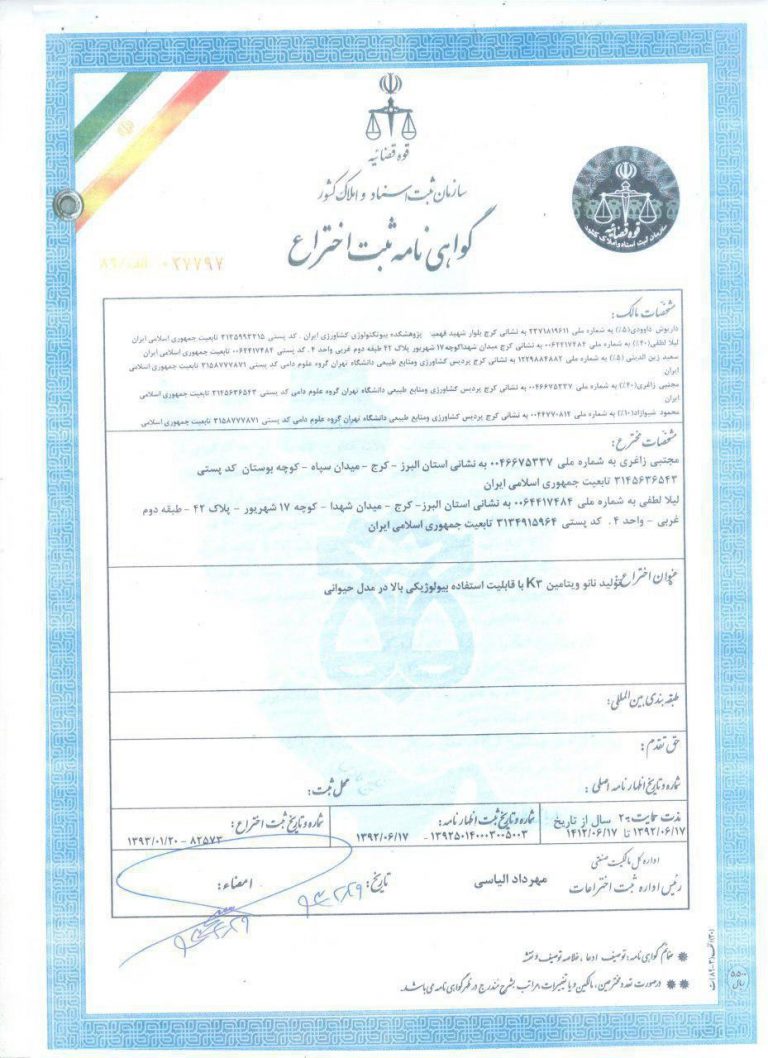 قوه قضائیه
سازمان ثبت اسناد و املاک کشور
گواهی نامه ثبت اختراع
قوه قضائیه
سازمان ثبت اسناد و املاک کشور
۰۳۷۷۹۷ الف/۸۹
مشخصات مالک:
داریوش داوودی (۵٪) به شماره ملی ۲۲۷۱۸۱۹۶۱۱ به نشانی کرج بلوار شهید فهمیده پژوهشکده بیوتکنولوژی کشاورزی ایران . کد پستی ۳۱۳۵۹۹۳۳۱۵ تابعیت جمهوری اسلامی ایران
لیلا لطفی (۴۰٪) به شماره ملی ۰۰۶۴۴۱۷۴۸۴ به نشانی کرج میدان شهدا کوچه ۱۷ شهریور پلاک ۴۲ طبقه دوم غربی واحد ۴ . کد پستی ۰۰۶۴۴۱۷۴۸۴ تابعیت جمهوری اسلامی ایران
سعید زین الدینی (۵٪) به شماره ملی ۱۲۲۹۸۸۴۸۸۲ به نشانی کرج پردیس کشاورزی ومنابع طبیعی دانشگاه تهران گروه علوم دامی کد پستی ۳۱۵۸۷۷۷۸۷۱ تابعیت جمهوری اسلامی
ایران
مجتبی زاغری (۴۰٪) به شماره ملی ۰۰۴۶۶۷۵۳۳۷ به نشانی کرج پردیس کشاورزی ومنابع طبیعی دانشگاه تهران گروه علوم دامی کد پستی ۳۱۴۵۶۳۶۵۴۳ تابعیت جمهوری اسلامی
ایران
محمود شیوازاد (۱۰٪) به شماره ملی ۰۰۴۴۷۷۰۸۱۲ به نشانی کرج پردیس کشاورزی ومنابع طبیعی دانشگاه تهران گروه علوم دامی کد پستی ۳۱۵۸۷۷۷۸۷۱ تابعیت جمهوری اسلامی
مشخصات مخترع:
مجتبی زاغری به شماره ملی ۰۰۴۶۶۷۵۳۳۷ به نشانی استان البرز - کرج - میدان سپاه - کوچه بوستان کد پستی
۳۱۴۵۶۳۶۵۴۳ تابعیت جمهوری اسلامی ایران
لیلا لطفی به شماره ملی ۰۰۶۴۴۱۷۴۸۴ به نشانی استان البرز- کرج - میدان شهدا - کوچه ۱۷ شهریور - پلاک ۴۲ - طبقه دوم
غربی - واحد ۴ . کد پستی ۳۱۳۴۹۱۵۹۶۴ تابعیت جمهوری اسلامی ایران
عنوان اختراع: تولید نانو ویتامین K۳ با قابلیت استفاده بیولوژیکی بالا در مدل حیوانی
طبقه بندی بین المللی:
حق تقدم:
شماره و تاریخ اظهارنامه اصلی: محل ثبت:
مدت حمایت: ۲۰ سال از تاریخ
۱۳۹۲/۰۶/۱۷ تا ۱۴۱۲/۰۶/۱۷
شماره و تاریخ ثبت اظهارنامه:
۱۳۹۲۵۰۱۴۰۰۰۳۰۰۵۰۰۳ - ۱۳۹۲/۰۶/۱۷
شماره و تاریخ ثبت اختراع:
۸۲۵۷۳ - ۱۳۹۳/۰۱/۲۰
اداره کل مالکیت صنعتی
رئیس اداره ثبت اختراعات مهرداد الیاسی تاریخ: امضاء:
ضمائم گواهی نامه: توصیف، ادعا، خلاصه توصیف و نقشه
درصورت تعدد مخترعین، مالکین و یا تغییرات، مراتب بشرح مندرج در ظهر گواهی نامه می باشد.
۵۵۰۰ ریال